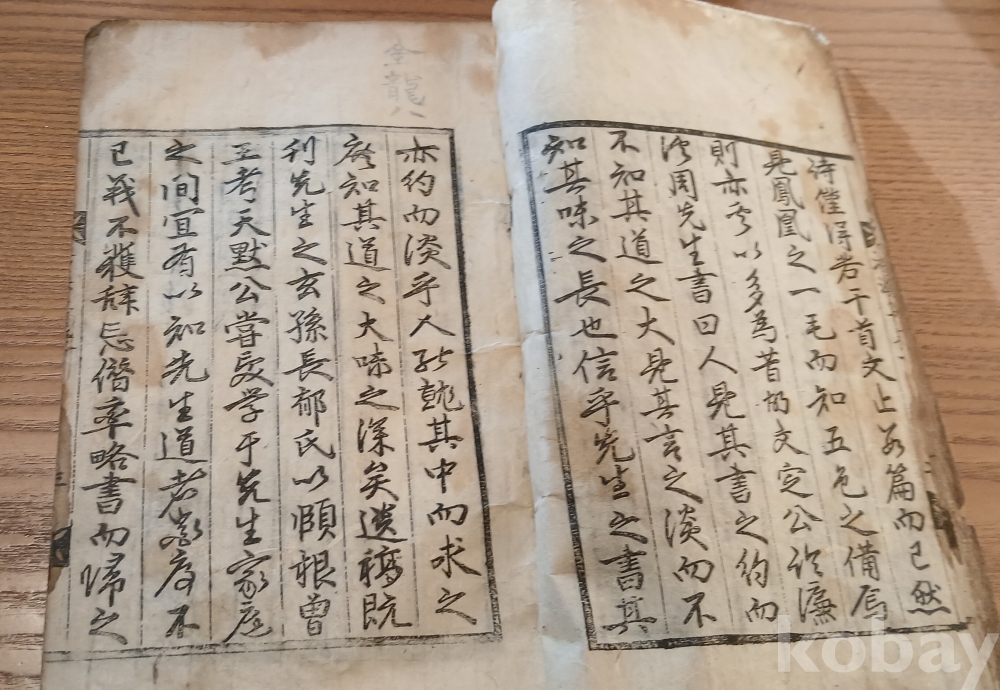 詩僅得若干首文止数篇而已然
見鳳凰之一毛而知五色之備焉
則亦奚以多為昔胡文定公論濂
溪周先生書曰人見其書之約而
不知其道之大見其言之淡而不
知其味之長也信乎先生之書其
亦約而淡乎人能就其中而求之
庶知其道之大味之深矣遺稿既
刊先生之玄孫長郁氏以頤根曾
王考天默公嘗受学于先生家庭
之間宜有以知先生道者序不
已義不獲辞忘僭率略書而歸之
kobay